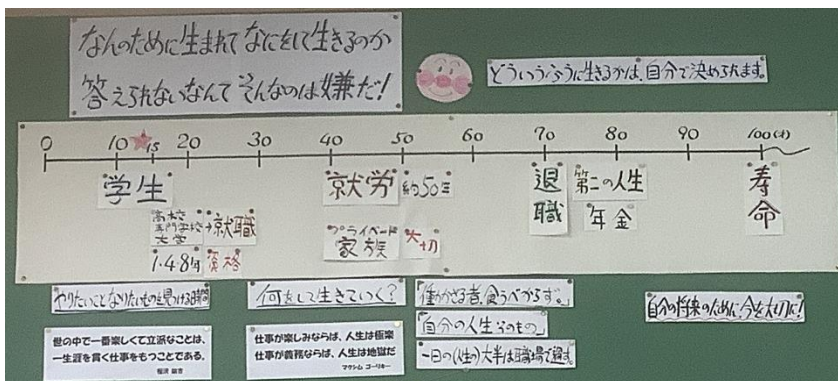 なんのために生まれて なにをして生きるのか
答えられないなんて そんなのは嫌だ!
どういうふうに生きるかは、自分で決められます。
0 10 15 20 30 40 50 60 70 80 90 100(才)
学生
就労 約50年
退職
第二の人生
年金
寿命
高校
専門学校
大学
→就職
1・4・8年 資格
プライベート
家族
大切
やりたいこと なりたいものを見つける時間
何をして生きていく?
働かざる者、食うべからず。
「自分の人生そのもの」
一日の(人生の)大半は職場で過す。
自分の将来のために今を大切に!
世の中で一番楽しくて立派なことは、
一生涯を貫く仕事をもつことである。
福沢 諭吉
仕事が楽しみならば、人生は極楽
仕事が義務ならば、人生は地獄だ
マクシム ゴーリキー